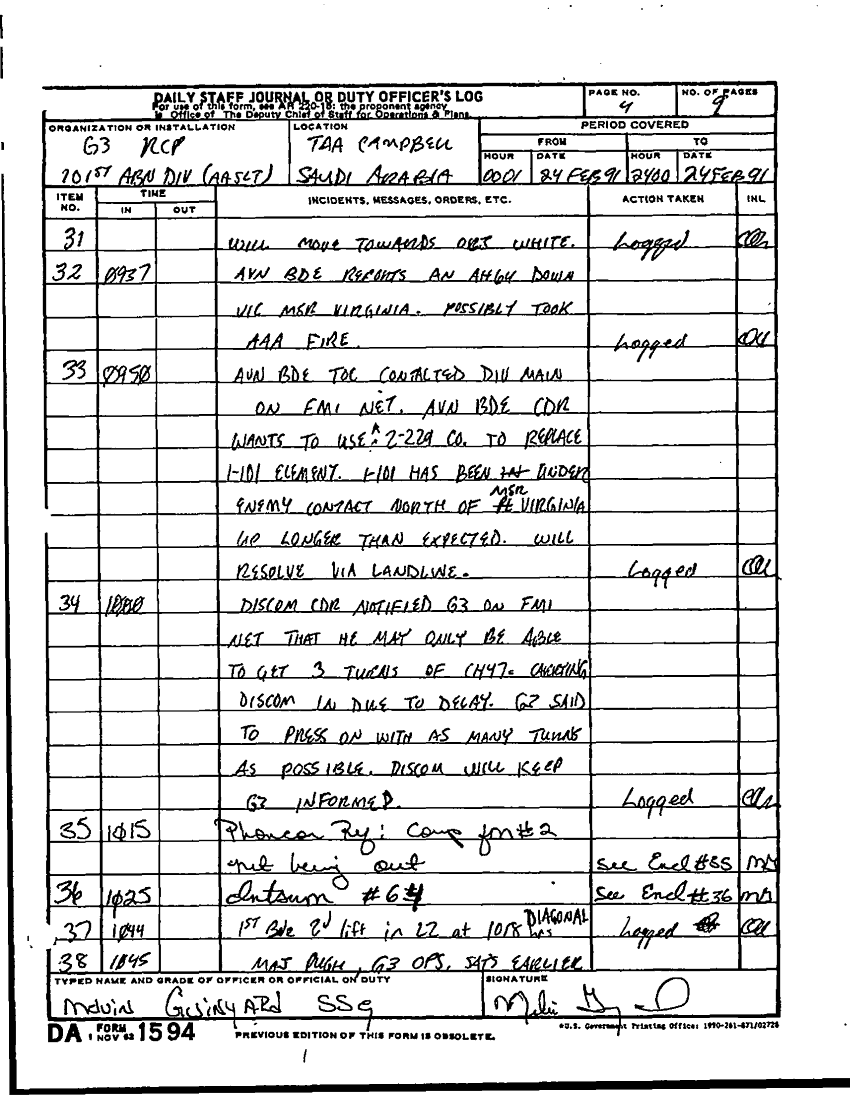 DAILY STAFF JOURNAL OR DUTY OFFICER'S LOG
For use of this form, see AR 220-15: the proponent agency
is Office of The Deputy Chief of Staff for Operations & Plans.
PAGE NO.
4
NO. OF PAGES
9
ORGANIZATION OR INSTALLATION
G3 RCP
101ST ABN DIV (AASLT)
LOCATION
TAA CAMPBELL
SAUDI ARABIA
PERIOD COVERED
FROM TO
HOUR DATE HOUR DATE
0001 24 FEB 91 2400 24 FEB 91
ITEM NO. TIME IN OUT INCIDENTS, MESSAGES, ORDERS, ETC. ACTION TAKEN INL
31 WILL MOVE TOWARDS OBJ WHITE. Logged
32 0937 AVN BDE REPORTS AN AH64 DOWN
VIC MSR VIRGINIA. POSSIBLY TOOK
AAA FIRE. Logged
33 0950 AVN BDE TOC CONTACTED DIV MAIN
ON FM1 NET. AVN BDE CDR
WANTS TO USE A 2-229 CO. TO REPLACE
1-101 ELEMENT. 1-101 HAS BEEN UNDER
ENEMY CONTACT NORTH OF MSR VIRGINIA
LONGER THAN EXPECTED. WILL
RESOLVE VIA LANDLINE. Logged
34 1000 DISCOM CDR NOTIFIED G3 ON FM1
NET THAT HE MAY ONLY BE ABLE
TO GET 3 TURNS OF CH47s CARRYING
DISCOM IN DUE TO DELAY. G3 SAID
TO PRESS ON WITH AS MANY TURNS
AS POSSIBLE. DISCOM WILL KEEP
G3 INFORMED. Logged
35 1015 Phoncon Rq: for #2
out See Encl #35 MG
36 1025 Intsum #64 See Encl #36 MG
37 1044 1ST Bde 2d lift in LZ at 1018 hrs DIAGONAL Logged
38 1045 MAJ PUGH, G3 OPS, SAYS EARLIER
TYPED NAME AND GRADE OF OFFICER OR OFFICIAL ON DUTY
Melvin Guinyard SSG
SIGNATURE
DA FORM 1 NOV 62 1594
PREVIOUS EDITION OF THIS FORM IS OBSOLETE.
*U.S. Government Printing Office: 1990-261-871/02728